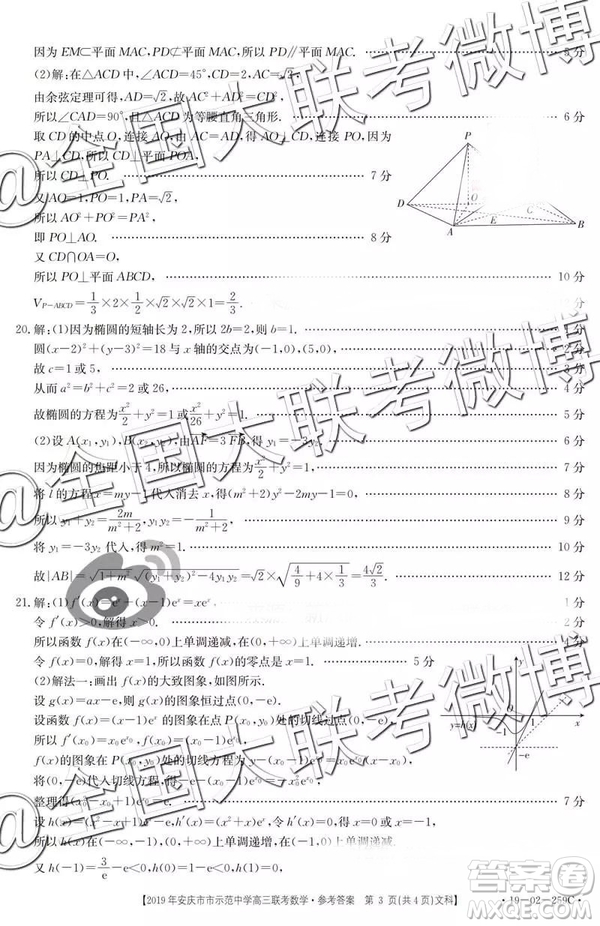 因为 EM⊂平面 MAC,PD⊄平面 MAC,所以 PD∥平面 MAC. 5 分
(2)解:在△ACD 中,∠ACD=45°,CD=2,AC=√2,
由余弦定理可得,AD=√2,故 AC²+AD²=CD²,
所以∠CAD=90°,且△ACD 为等腰直角三角形. 6 分
取 CD 的中点 O,连接 PO,OA,因为
PA⊥CD,所以 CD⊥平面 POA,
所以 CD⊥PO. 7 分
又 AO=1,PO=1,PA=√2,
所以 AO²+PO²=PA²,
即 PO⊥AO. 8 分
又 CD∩OA=O,
所以 PO⊥平面 ABCD, 10 分
V_{P-ABCD}=1/3×2×1/2×√2×√2×1=2/3.
P
D
A
E
C
B
20.解:(1)因为椭圆的短轴长为 2,所以 2b=2,则 b=1.
圆(x-2)²+(y-3)²=18 与 x 轴的交点为(-1,0),(5,0),
故 c=1 或 5, 3 分
从而 a²=b²+c²=2 或 26, 4 分
故椭圆的方程为 x²/2+y²=1 或 x²/26+y²=1. 5 分
(2)设 A(x₁,y₁),B(x₂,y₂),由AF=3FB,得 y₁=-3y₂.
因为椭圆的焦距小于 4,所以椭圆的方程为 x²/2+y²=1,
将 l 的方程 x=my-1 代入消去 x,得(m²+2)y²-2my-1=0, 8 分
所以 y₁+y₂=2m/(m²+2), 9 分
将 y₁=-3y₂ 代入,得 m²=1.
故|AB|=√(1+m²)√((y₁+y₂)²-4y₁y₂)=√2×√(4/9+4×1/3)=4√2/3. 12 分
21.解:(1)f′(x)=eˣ+(x-1)eˣ=xeˣ, 1 分
令 f′(x)>0,解得 x>0,
所以函数 f(x)在(-∞,0)上单调递减,在(0,+∞)上单调递增.
令 f(x)=0,解得 x=1,所以函数 f(x)的零点是 x=1. 5 分
(2)解法一:画出 f(x)的大致图象,如图所示.
设 g(x)=ax-e,则 g(x)的图象恒过点(0,-e).
设函数 f(x)=(x-1)eˣ 的图象在点 P(x₀,y₀)处的切线过点(0,-e),
所以 f′(x₀)=x₀e^{x₀},f(x₀)=(x₀-1)e^{x₀},
f(x)的图象在 P(x₀,y₀)处的切线方程为 y-(x₀-1)e^{x₀}=x₀e^{x₀}(x-x₀),
将(0,-e)代入切线方程,得-e-(x₀-1)e^{x₀}=-x₀²e^{x₀},
整理得(x₀²-x₀+1)e^{x₀}=e. 7 分
设 h(x)=(x²-x+1)eˣ-e,则 h′(x)=(x²+x)eˣ,令 h′(x)=0,得 x=0 或 x=-1,
所以 h(x)在(-∞,-1),(0,+∞)上单调递增,在(-1,0)上单调递减,
又 h(-1)=3/e-e<0,h(0)=1-e<0,h(1)=0,
x
-e
【2019 年安庆市市示范中学高三联考数学·参考答案 第 3 页(共 4 页)文科】
·19-02-259C·
@全国大联考微博
@全国大联考微博
答案圈
MXQE.COM